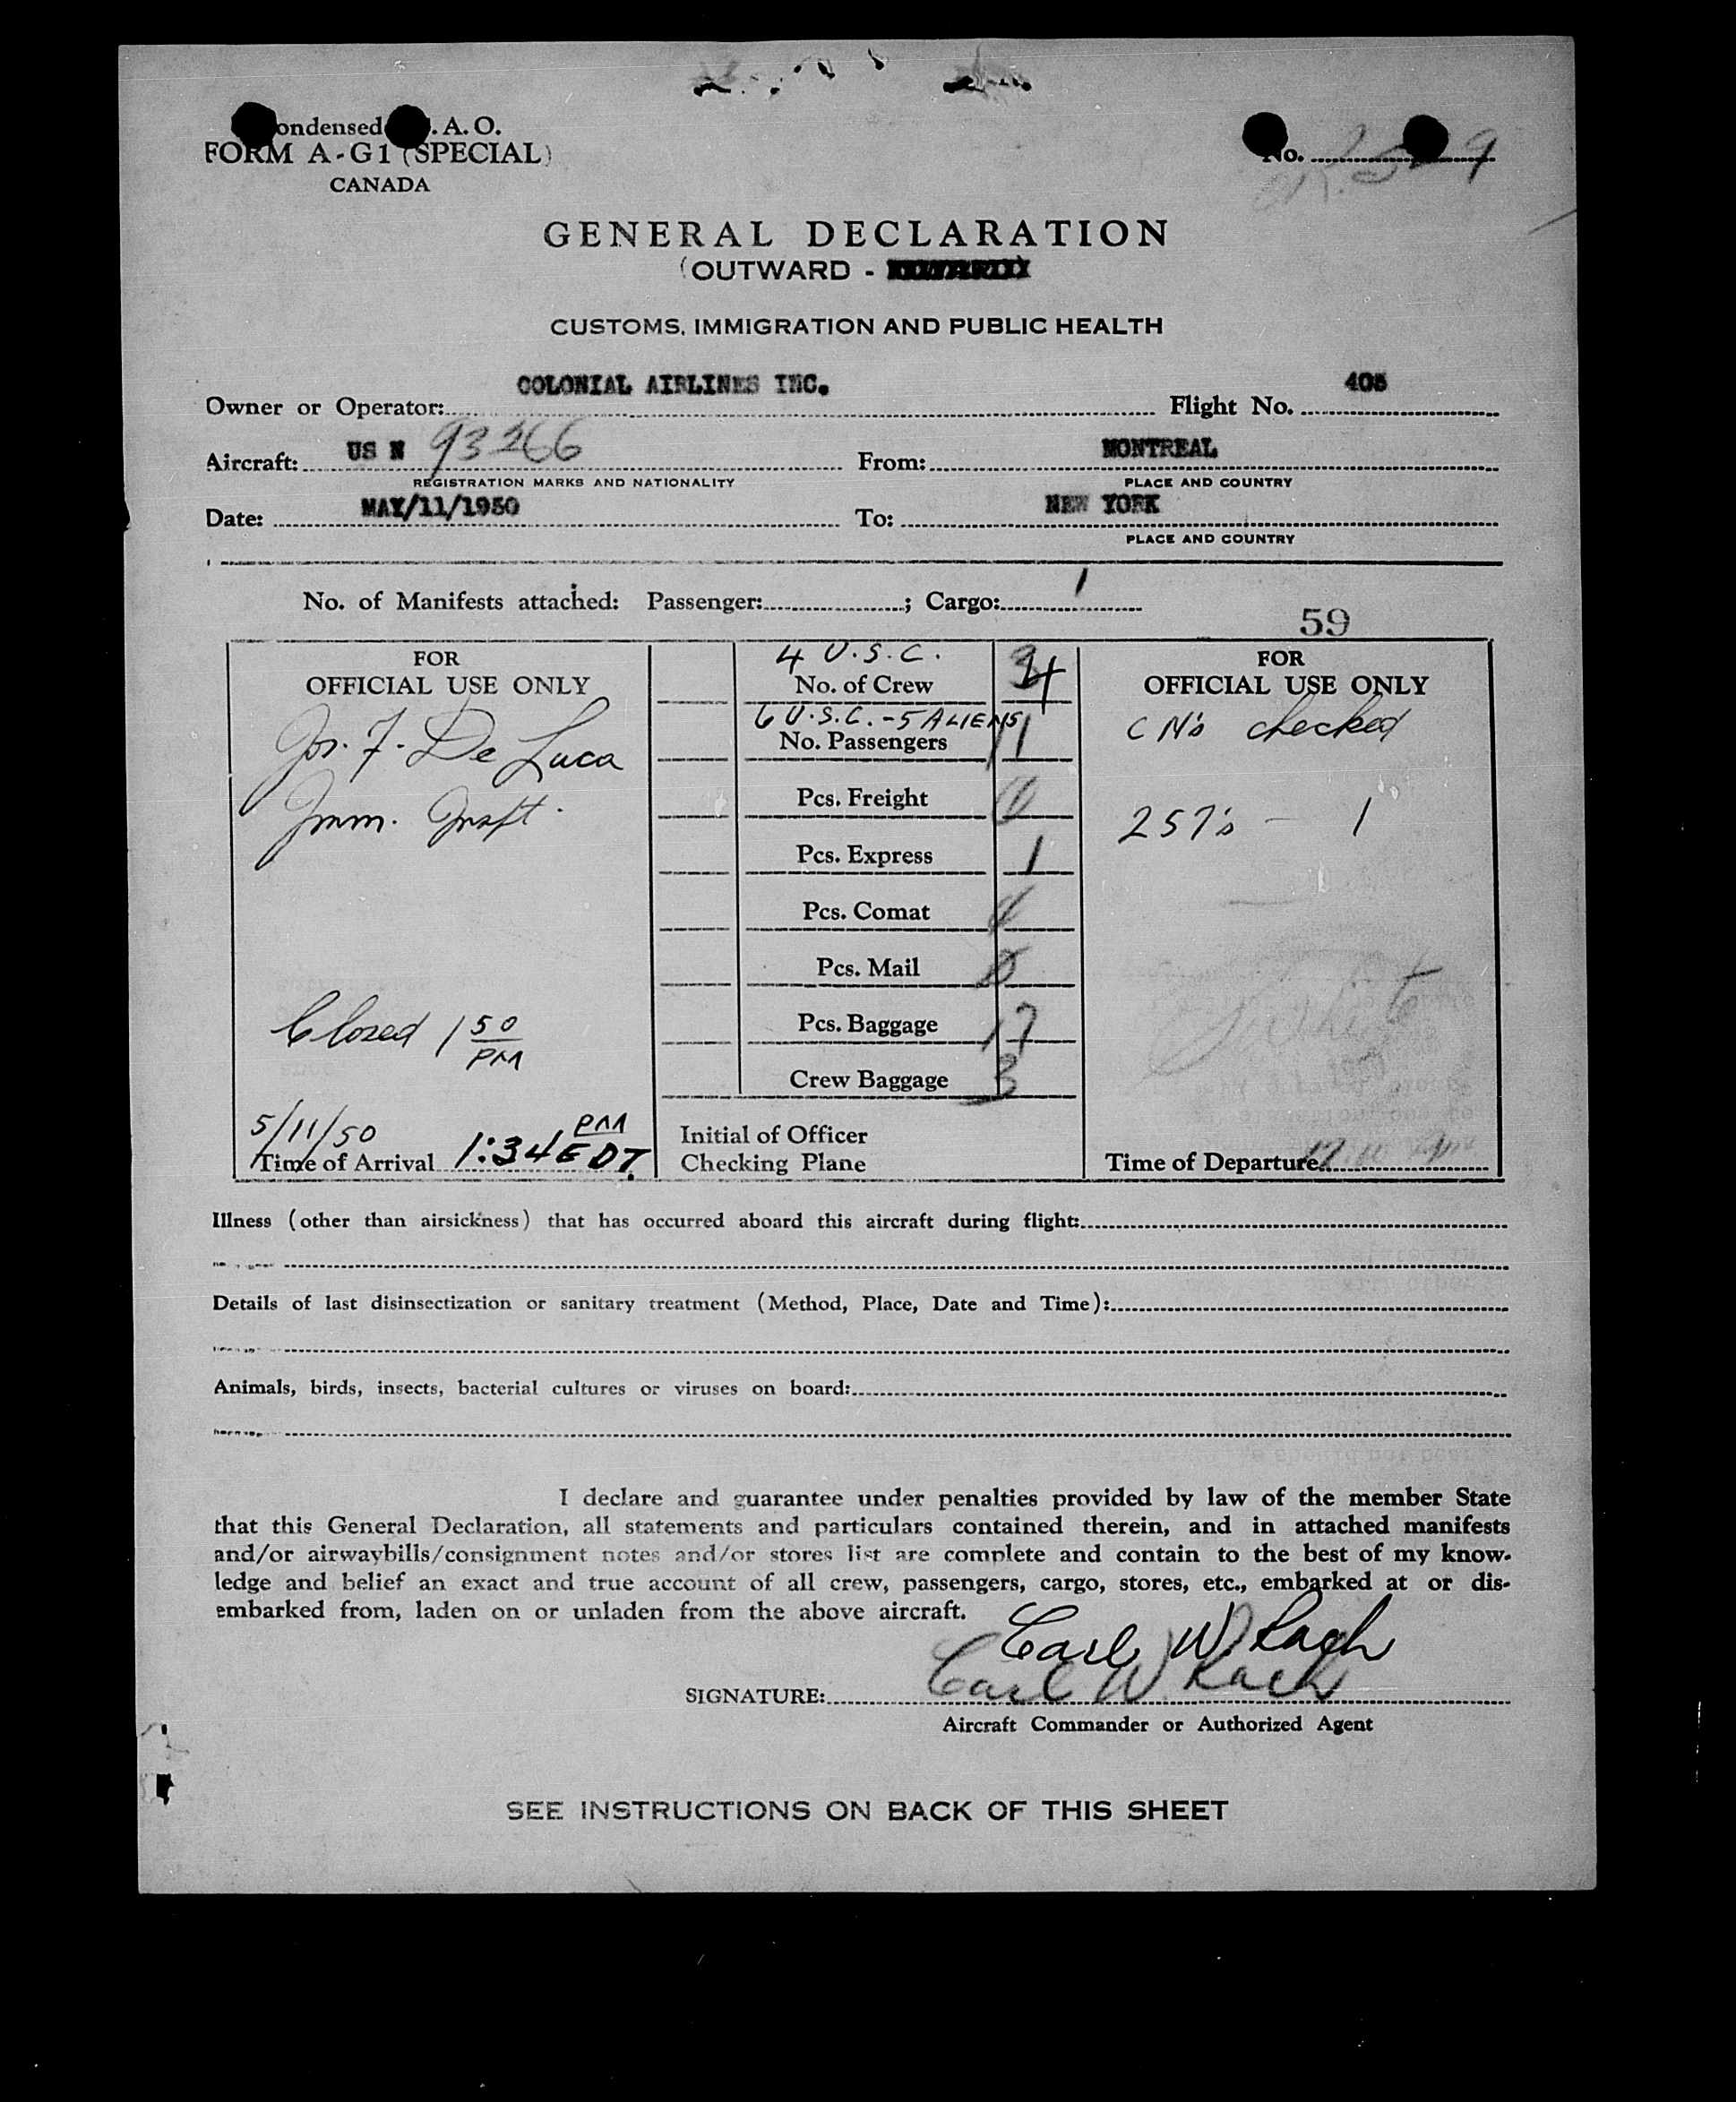 ondensed . A. O.
FORM A-G1 (SPECIAL)
CANADA
No. 9
GENERAL DECLARATION
(OUTWARD -
CUSTOMS, IMMIGRATION AND PUBLIC HEALTH
COLONIAL AIRLINES INC. 405
Owner or Operator: Flight No.
Aircraft: US N 93266 From: MONTREAL
REGISTRATION MARKS AND NATIONALITY PLACE AND COUNTRY
Date: MAY/11/1950 To: NEW YORK
PLACE AND COUNTRY
No. of Manifests attached: Passenger: ; Cargo: 1
59
FOR
OFFICIAL USE ONLY
Jos. F. De Luca
Imm. Inspt.
Closed 1 50
PM
5/11/50
Time of Arrival 1:34 PM EDT.
4 U.S.C.
No. of Crew 4
6 U.S.C. - 5 ALIENS
No. Passengers 11
Pcs. Freight 0
Pcs. Express 1
Pcs. Comat 0
Pcs. Mail 0
Pcs. Baggage 17
Crew Baggage 3
Initial of Officer
Checking Plane
FOR
OFFICIAL USE ONLY
CN's checked
257's - 1
Time of Departure
Illness (other than airsickness) that has occurred aboard this aircraft during flight:
Details of last disinsectization or sanitary treatment (Method, Place, Date and Time):
Animals, birds, insects, bacterial cultures or viruses on board:
I declare and guarantee under penalties provided by law of the member State
that this General Declaration, all statements and particulars contained therein, and in attached manifests
and/or airwaybills/consignment notes and/or stores list are complete and contain to the best of my know-
ledge and belief an exact and true account of all crew, passengers, cargo, stores, etc., embarked at or dis-
embarked from, laden on or unladen from the above aircraft.
Carl W. Rach
SIGNATURE: Carl W. Rach
Aircraft Commander or Authorized Agent
SEE INSTRUCTIONS ON BACK OF THIS SHEET